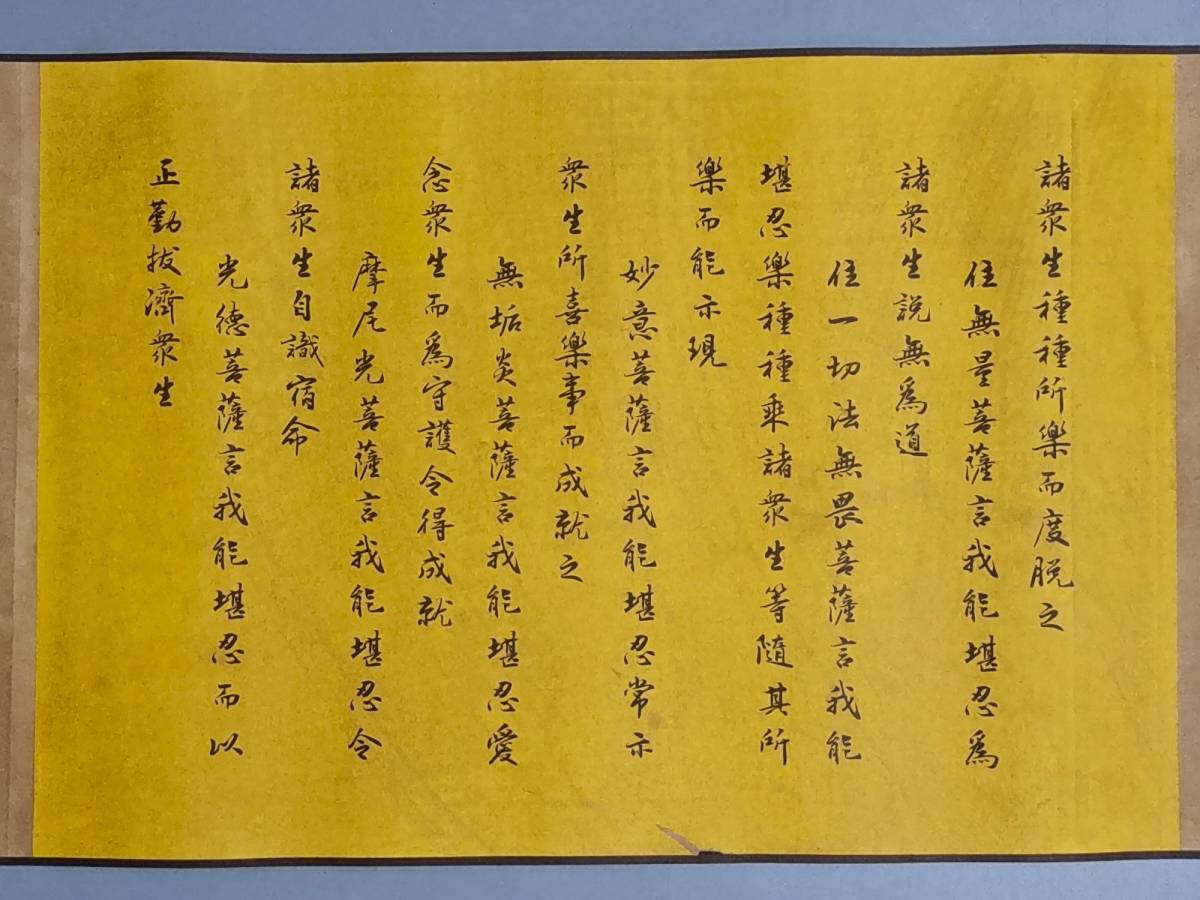 諸衆生種種所樂而度脱之
住無量菩薩言我能堪忍爲
諸衆生説無爲道
住一切法無畏菩薩言我能
堪忍樂種種乘諸衆生等隨其所
樂而能示現
妙意菩薩言我能堪忍常示
衆生所喜樂事而成就之
無垢炎菩薩言我能堪忍愛
念衆生而爲守護令得成就
摩尼光菩薩言我能堪忍令
諸衆生自識宿命
光德菩薩言我能堪忍而以
正勤拔濟衆生